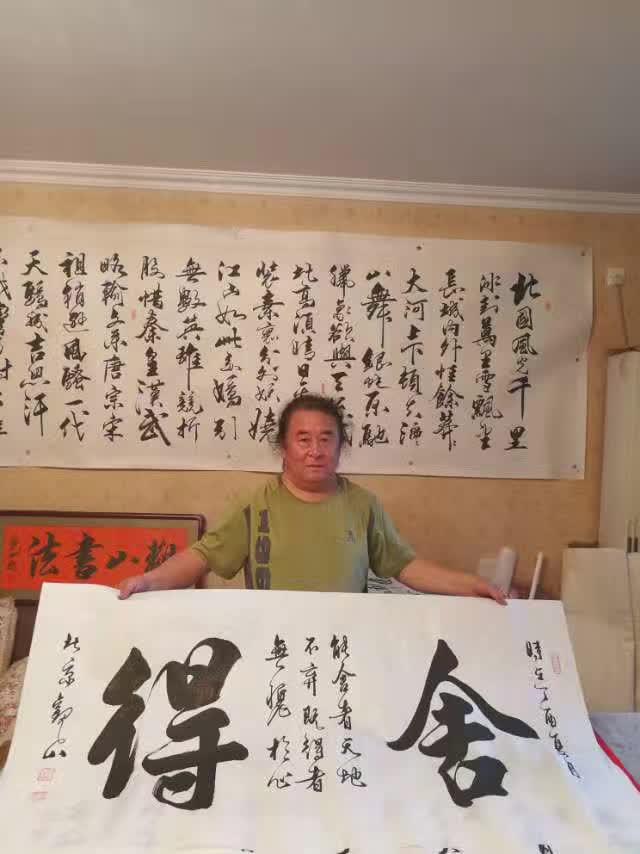 北國風光千里
冰封萬里雪飄望
長城內外惟餘莽
大河上下頓失滔
山舞銀蛇原馳
臘象欲與天
比高須晴日看
裝素裹分外妖嬈
江山如此多嬌引
無數英雄競折
腰惜秦皇漢武
略輸文采唐宗宋
祖稍遜風騷一代
天驕成吉思汗
山書法
時在丁酉夏月
舍
能舍者天地
不弃既得者
無愧於心
得
北京 山